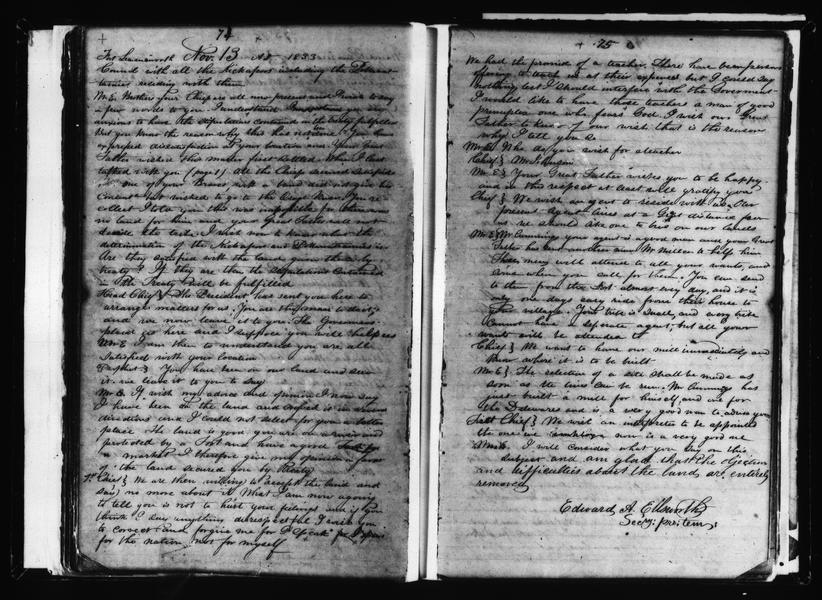 74
Fort Leavenworth Nov. 13 AD 1833
Council with all the Kickapoos including the
residing with them
Mr. E. Brothers your Chiefs are all now present and I wish to say
a few words to you. I understand you are
anxious to have the stipulations contained in the treaty fulfilled
But you know the reason why this has not been. You have
expressed dissatisfaction at your location and your Great
Father wishes this matter first settled. When I last
talked with you (page 1) All the Chiefs seemed satisfied
one of your Braves with a band did not give his
consent but wished to go to the River. You re-
collect I told you this was impossible for there was
no land for him and your Great Father will not
I wish now to know what the
determination of the Kickapoos and is
Are they satisfied with the lands given them by
treaty? If they are then the stipulations contained
in the Treaty will be fulfilled
Head Chief } The President has sent you here to
arrange matters for us. You are the man to do it,
and we now leave it to you. The Government
placed us here and I suppose you will help us
Mr. E I am then to understand you are all
satisfied with your location
Prophet } You have been on our land and seen
it. we leave it to you to say
Mr. E. If with my advice and opinion I now say
I have been on the land and crossed it in several
directions and I could not select for you a better
place. The land is good you are on a river and
protected by a Fort and have a good
a market I therefore give my opinion in favor
of the land secured you by Treaty
1st Chief } We are then willing to accept the land and
say no more about it. What I am now agoing
to tell you is not to hurt your feelings and if you
think I say anything disrespectful I wish you
to correct and forgive me for I speak
for the nation not for myself
75
We had the promise of a teacher. There have been persons
offering to teach us at their expense but I could say
nothing lest I should interfere with the Government
I would like to have those teachers a man of good
principles one who fears God. I wish our Great
Father to hear of our wish that is the reason
why I tell you so
Mr. E. Who do you wish for a teacher
Chief }
Mr. E } Your Great Father wishes you to be happy
and in this respect at least will gratify you
Chief } We wish an agent to reside with us. Our
present Agent lives at a great distance from
us. we should like one to live on our lands
Mr. E } Mr. Cummings your agent is a good man and your Great
Father has sent another man Mr. to help him
These men will attend to all your wants, and
come when you call for them. You can send
to them from the Fort almost every day, and it is
only one days easy ride from their house to
this village. Your tribe is small, and every tribe
cannot have a seperate agent, but all your
wants will be attended to
Chief } We want to have our mill immediately and
know where it is to be built
Mr. E } The selection of a site shall be made as
soon as the lines can be run. Mr. Cummings has
just built a mill for himself and one for
the Delawares and is a very good man to advise you
First Chief } We wish an interpreter to be appointed
the one we now is a very good one
Answer. I will consider what you say on this
subject and am glad that the objection
and difficulties about the land are entirely
removed
Edward A. Ellsworth
Secy. pro. tem.